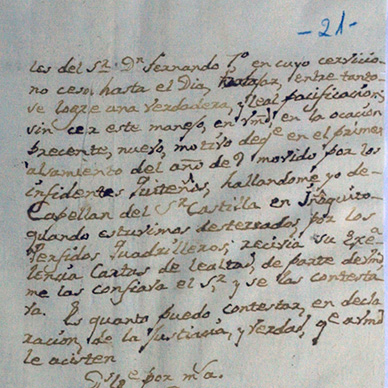 -21-
les del Sr. Dn Fernando 7o, en cuyo cervicio
no ceso, hasta el Dia, trabajar, entre tanto
se logre una verdadera, y leal pacificacion;
sin cer este manejo, en vmd, en la ocacion
precente, nuevo, motivo de qe en el primer
alsamiento del año de 9 movido por los
infidentes Quiteños, hallandome yo de
Capellan del Sr Castilla en
quando estuvimos desterrados, por los
perfidos quadrilleros; recivia su Exe
lencia Cartas de lealtad, de parte de vmd
me las confiava el Sr y se las contesta
va. Es quanto puedo contestar, en decla
racion, de la Justicia, y verdad, qe a vmd
le acisten
por ms a.